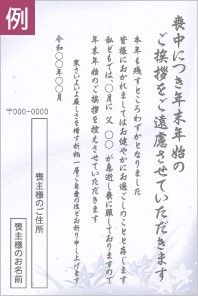 例
喪中につき年末年始の
ご挨拶をご遠慮させていただきます
本年も残すところわずかとなりました
皆様におかれましてはお健やかにお過ごしのことと存じます
私どもでは、〇月に父 〇〇が急逝し喪に服しておりますので
年末年始のご挨拶を控えさせていただきます
寒さいよいよ厳しさを増す折柄 一層ご自愛のほどお祈り申し上げます
令和〇〇年〇〇月
〒000-0000
喪主様のご住所
喪主様のお名前